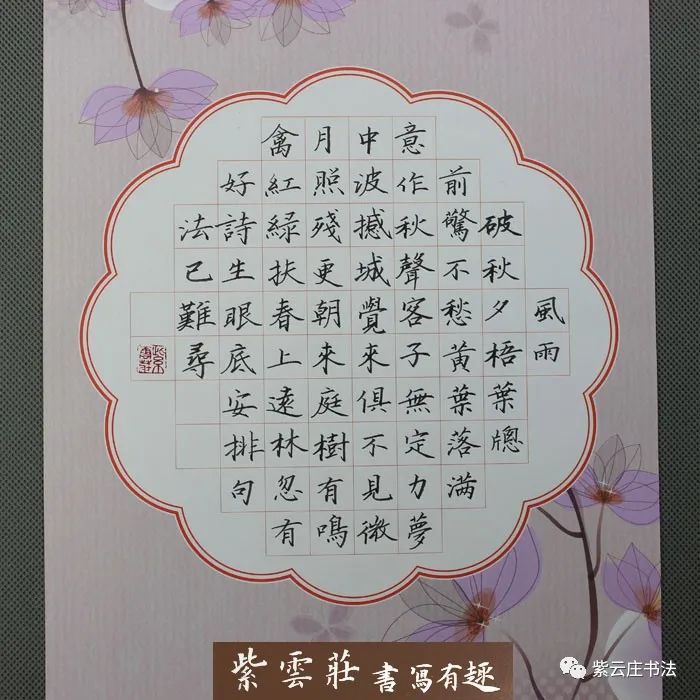 風雨
破秋夕梧葉牕
前驚不愁黃葉落满
意作秋聲客子無定力夢
中波撼城覺來俱不見微
月照殘更朝來庭樹有鳴
禽紅綠扶春上遠林忽有
好詩生眼底安排句
法已難尋
紫雲莊 書寫有趣
紫云庄书法